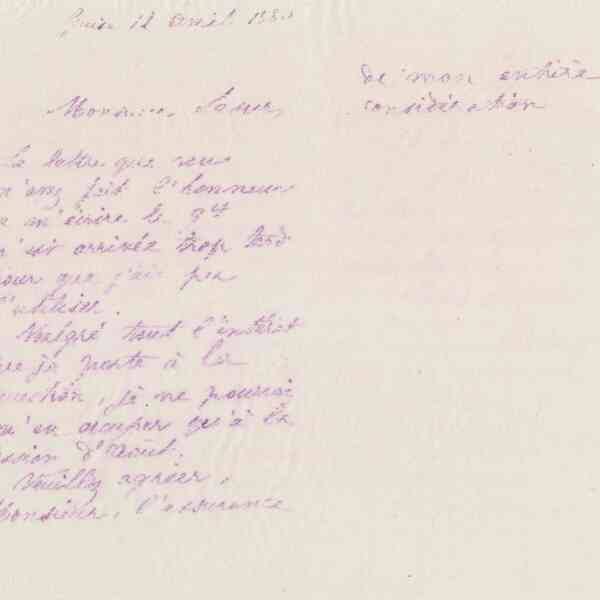 12 Avril 188
Monsieur
La lettre que vous
m'avez fait l'honneur
m'écrire le 9 ct
m'est arrivée trop tard
pour que j'aie pu
l'utiliser.
Malgré tout l'intérêt
que je porte à la
question, je ne pourrai
m'en occuper qu'à la
session d'Août.
Veuillez agréer,
Monsieur, l'assurance
de mon entière
considération